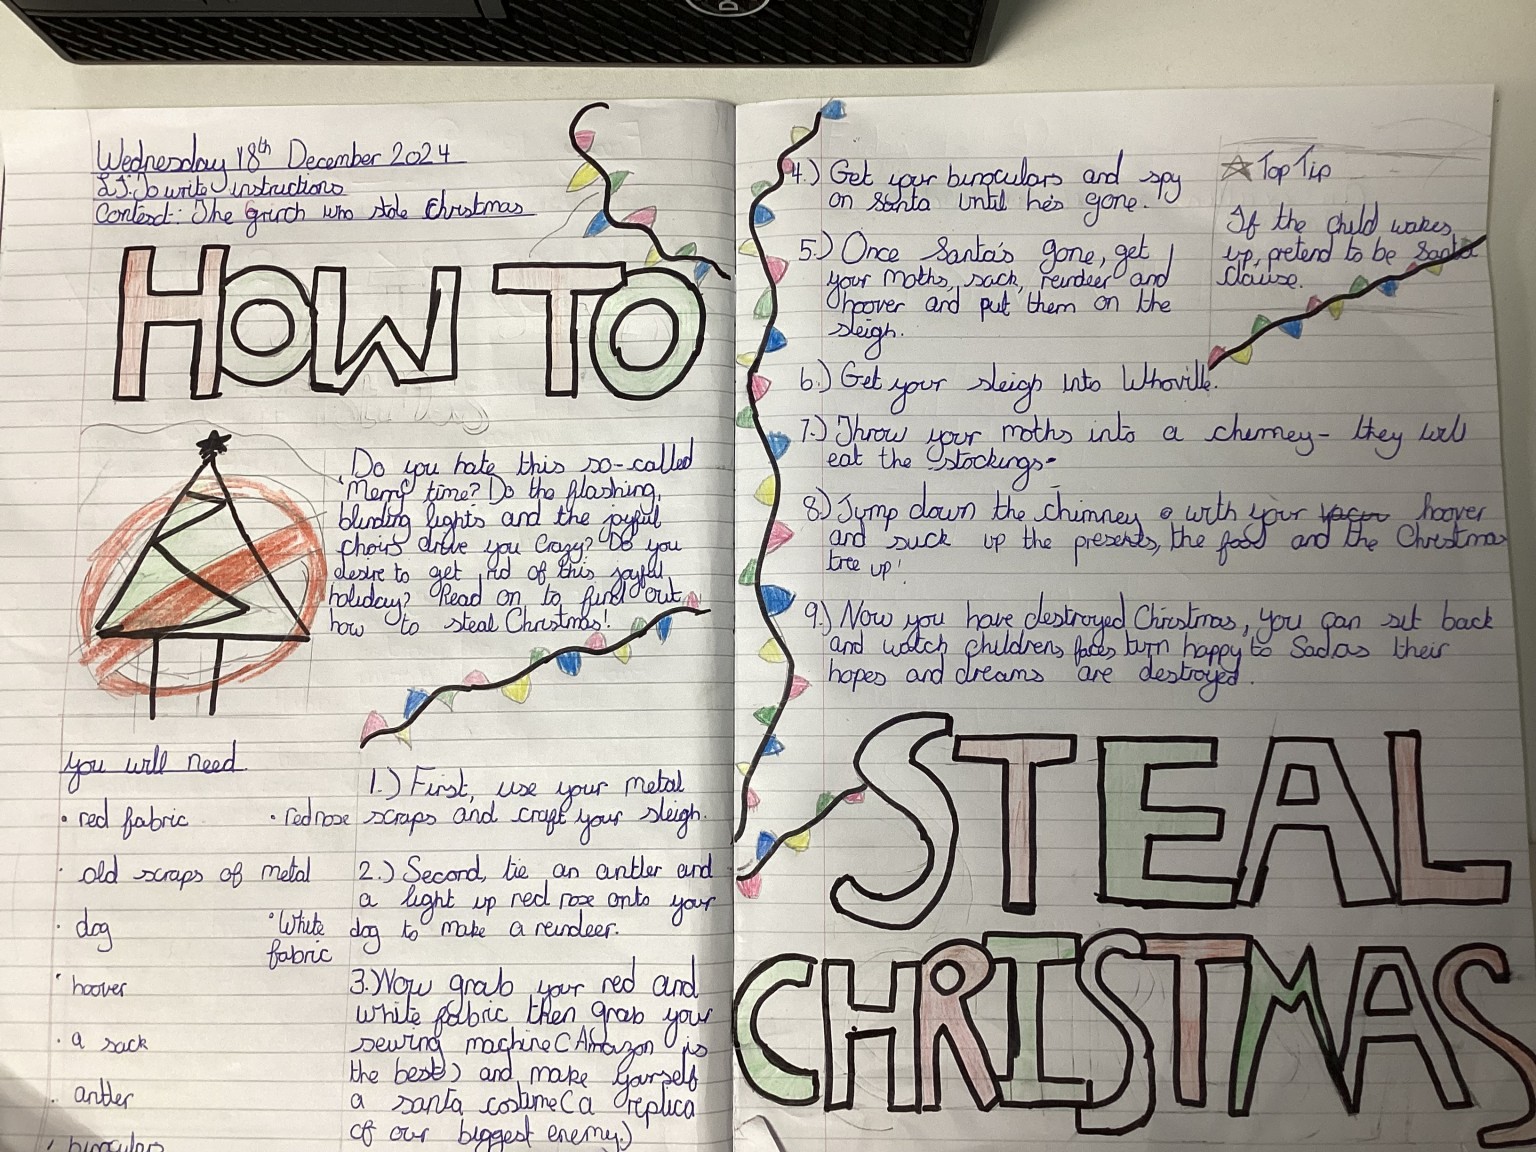 Wednesday 18th December 2024
L.I. To write instructions
Context: The grinch who stole Christmas
HOW TO
Do you hate this so-called
'Merry' time? Do the flashing,
blinding lights and the joyful
choirs drive you crazy? Do you
desire to get rid of this joyful
holiday? Read on to find out
how to steal Christmas!
you will need
• red fabric
• red nose
• old scraps of metal
• dog
• White
fabric
• hoover
• a sack
• antler
• binoculars
1.) First, use your metal
scraps and craft your sleigh.
2.) Second, tie an antler and
a light up red nose onto your
dog to make a reindeer.
3.Now grab your red and
white fabric then grab your
sewing machine (Amazon is
the best) and make yourself
a santa costume (a replica
of our biggest enemy.)
4.) Get your binoculars and spy
on Santa until he's gone.
5.) Once Santa's gone, get
your moths, sack, reindeer and
hoover and put them on the
sleigh.
6.) Get your sleigh into Whoville.
7.) Throw your moths into a chimney - they will
eat the stockings.
8.) Jump down the chimney with your hoover
and suck up the presents, the food and the Christmas
tree up!
9.) Now you have destroyed Christmas, you can sit back
and watch childrens faces turn happy to Sad as their
hopes and dreams are destroyed.
☆ Top Tip
If the child wakes
up, pretend to be Santa
Clause.
STEAL
CHRISTMAS